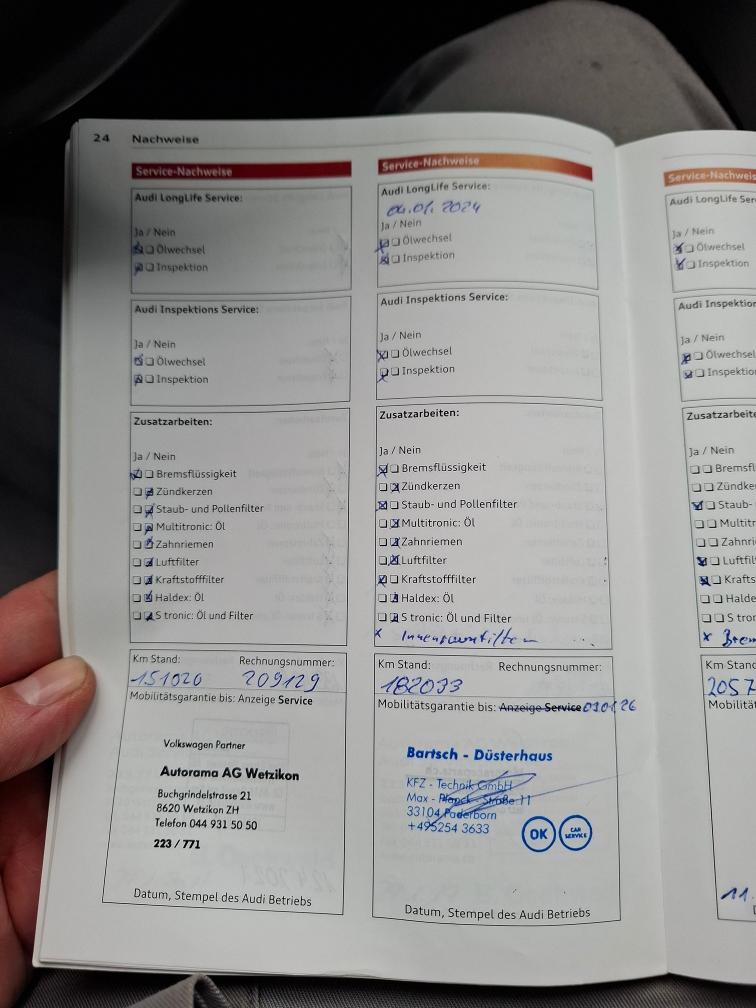 24 Nachweise
Service-Nachweise
Audi LongLife Service:
Ja / Nein
Ölwechsel
Inspektion
Audi Inspektions Service:
Ja / Nein
Ölwechsel
Inspektion
Zusatzarbeiten:
Ja / Nein
Bremsflüssigkeit
Zündkerzen
Staub- und Pollenfilter
Multitronic: Öl
Zahnriemen
Luftfilter
Kraftstofffilter
Haldex: Öl
S tronic: Öl und Filter
Km Stand: Rechnungsnummer:
151020 209129
Mobilitätsgarantie bis: Anzeige Service
Volkswagen Partner
Autorama AG Wetzikon
Buchgrindelstrasse 21
8620 Wetzikon ZH
Telefon 044 931 50 50
223 / 771
Datum, Stempel des Audi Betriebs
Service-Nachweise
Audi LongLife Service:
04.01.2024
Ja / Nein
Ölwechsel
Inspektion
Audi Inspektions Service:
Ja / Nein
Ölwechsel
Inspektion
Zusatzarbeiten:
Ja / Nein
Bremsflüssigkeit
Zündkerzen
Staub- und Pollenfilter
Multitronic: Öl
Zahnriemen
Luftfilter
Kraftstofffilter
Haldex: Öl
S tronic: Öl und Filter
x Innenraumfilter
Km Stand: Rechnungsnummer:
182033
Mobilitätsgarantie bis: Anzeige Service
Bartsch - Düsterhaus
KFZ - Technik GmbH
Max - Planck - Straße 11
33104 Paderborn
+495254 3633
OK
CAR SERVICE
Datum, Stempel des Audi Betriebs
Service-Nachweis
Audi LongLife Ser
Ja / Nein
Ölwechsel
Inspektion
Audi Inspektion
Ja / Nein
Ölwechse
Inspektio
Zusatzarbeite
Ja / Nein
Bremsfl
Zündke
Staub-
Multitr
Zahnri
Luftfil
Krafts
Halde
S tror
x Brem
Km Stand
2057
Mobilitä
11.